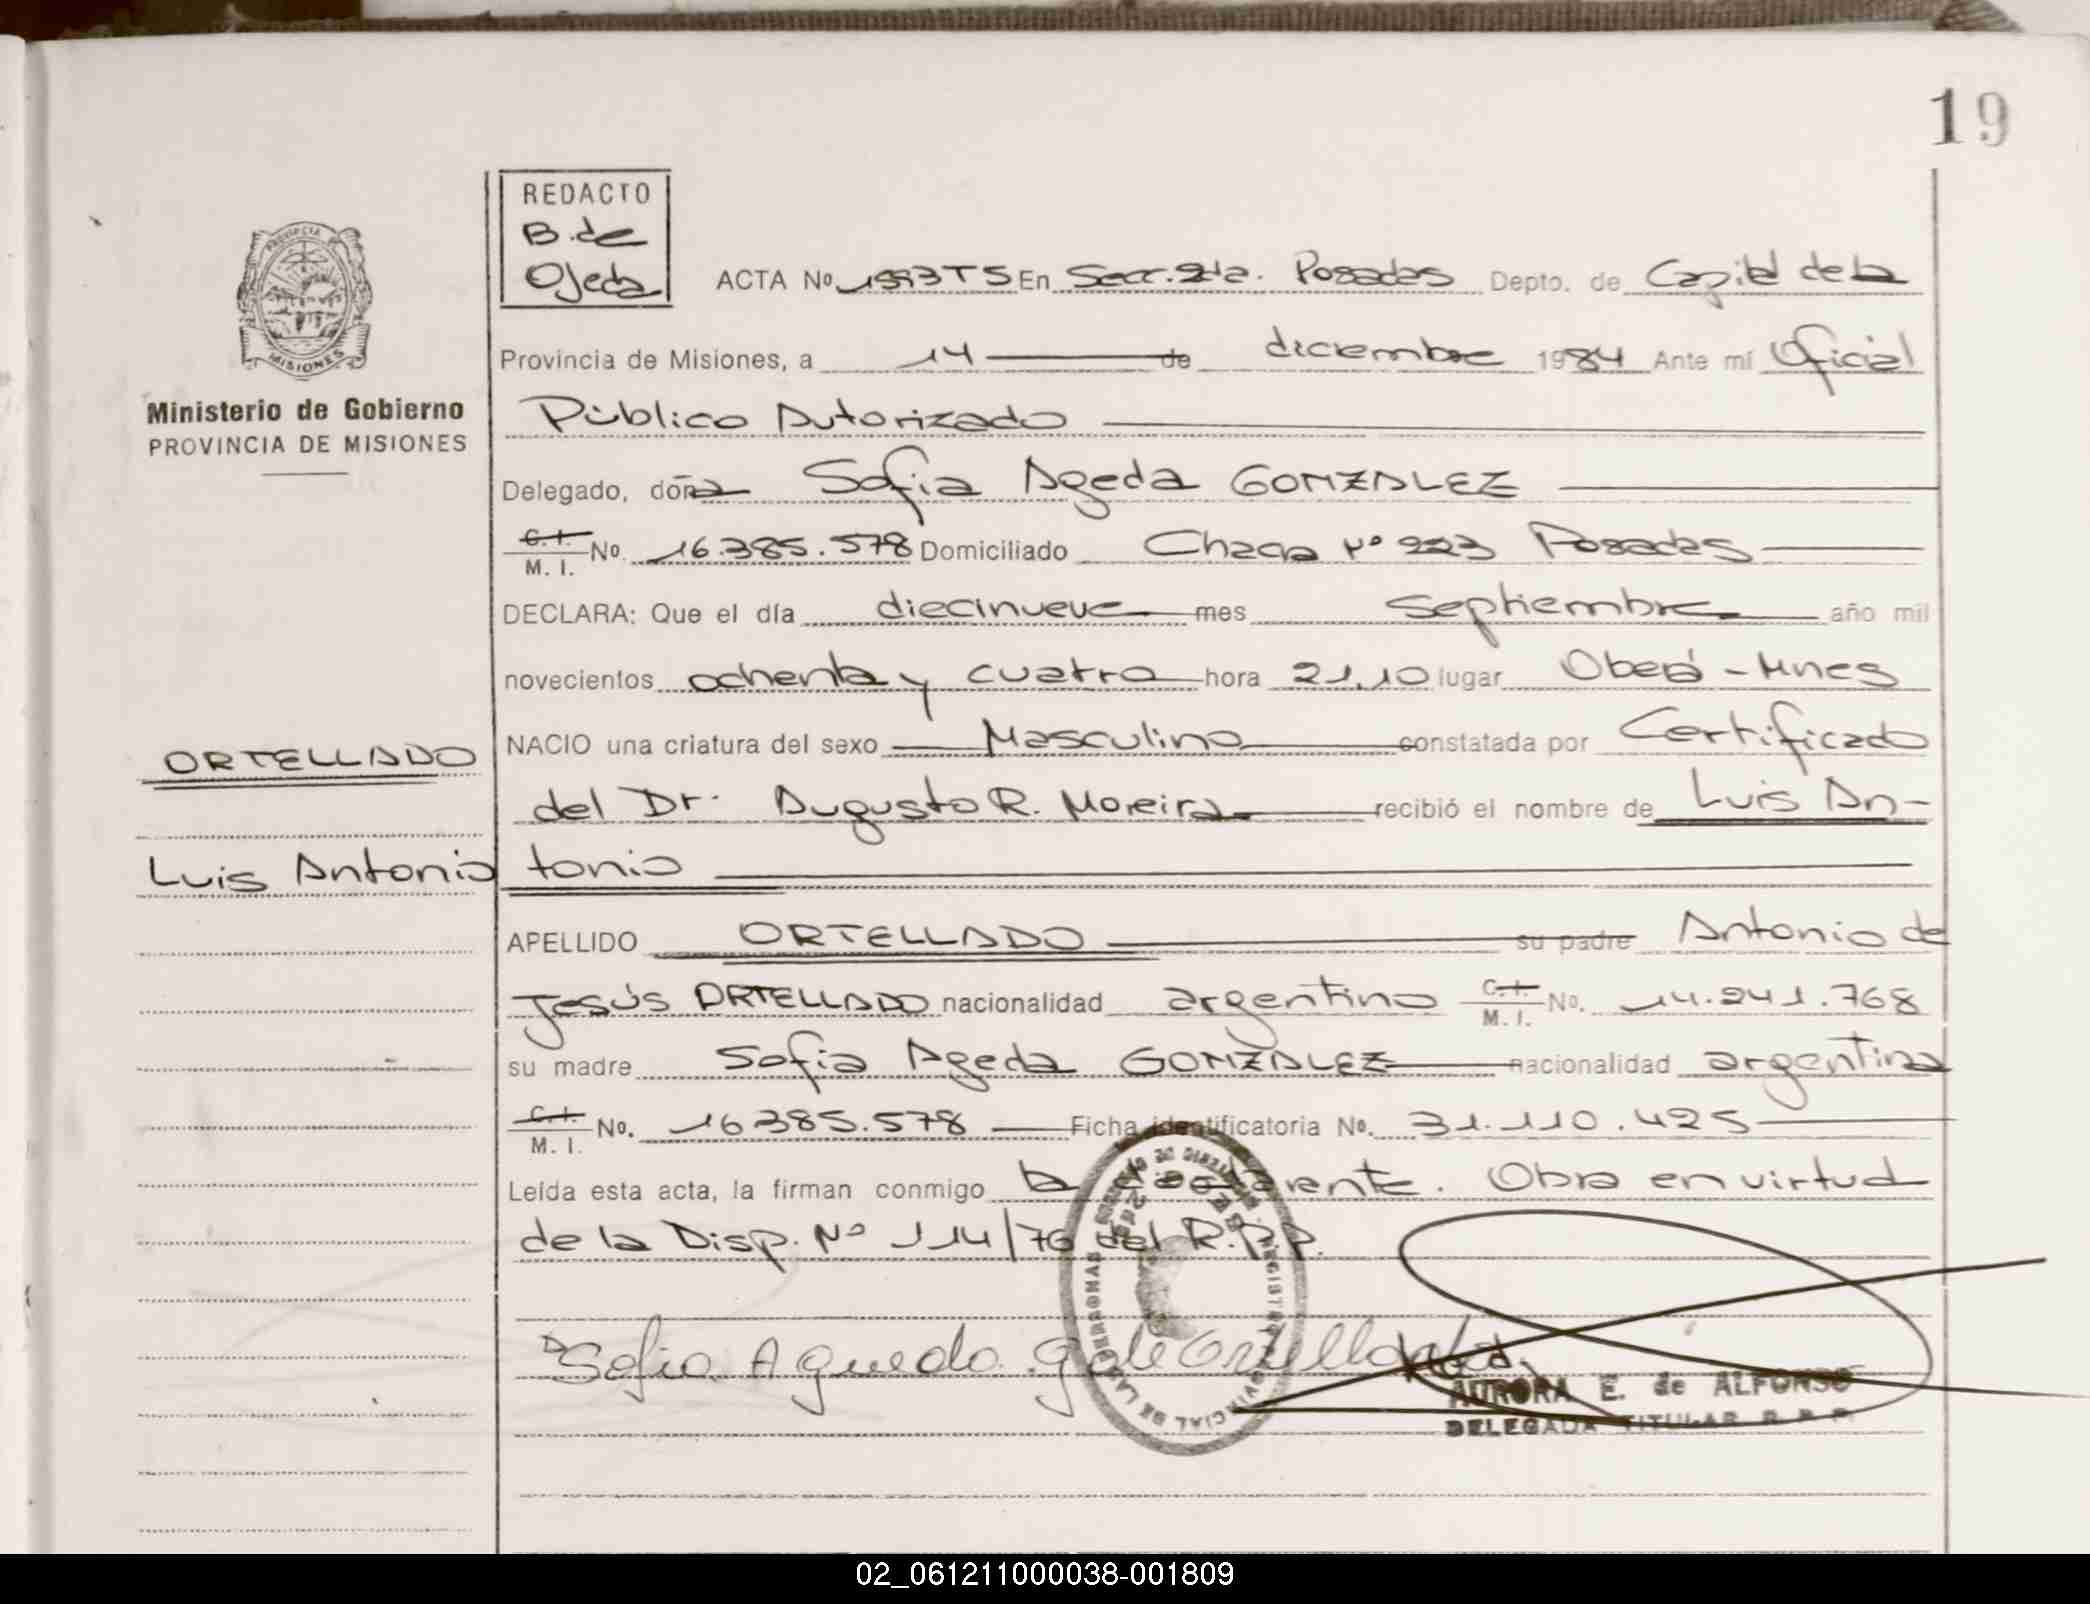 19
REDACTO
B. de
Ojeda
ACTA No 1993 TS En Secc. 2da. Posadas Depto. de Capital de la
PROVINCIA
MISIONES
Provincia de Misiones, a 14 de diciembre 1984 Ante mí Oficial
Ministerio de Gobierno
PROVINCIA DE MISIONES
Público Autorizado
Delegado, doña Sofia Ageda GONZALEZ
C. I.
M. I. No. 16.385.578 Domiciliado Chacra Nº 223 Posadas
DECLARA: Que el día diecinueve mes Septiembre año mil
novecientos ochenta y cuatro hora 21,10 lugar Oberá - Mnes
NACIO una criatura del sexo Masculino constatada por Certificado
ORTELLADO
del Dr. Augusto R. Moreira recibió el nombre de Luis An-
Luis Antonio
tonio
APELLIDO ORTELLADO su padre Antonio de
Jesús ORTELLADO nacionalidad argentino C. I. M. I. No. 14.241.768
su madre Sofia Ageda GONZALEZ nacionalidad argentina
C. I.
M. I. No. 16385.578 Ficha identificatoria No. 31.110.425
Leída esta acta, la firman conmigo la declarante. Obra en virtud
de la Disp. Nº 114/76 del R.P.P.
Sofia Agueda G de Ortellado
AURORA E. de ALFONSO
DELEGADA TITULAR R. P. P.
02_061211000038-001809